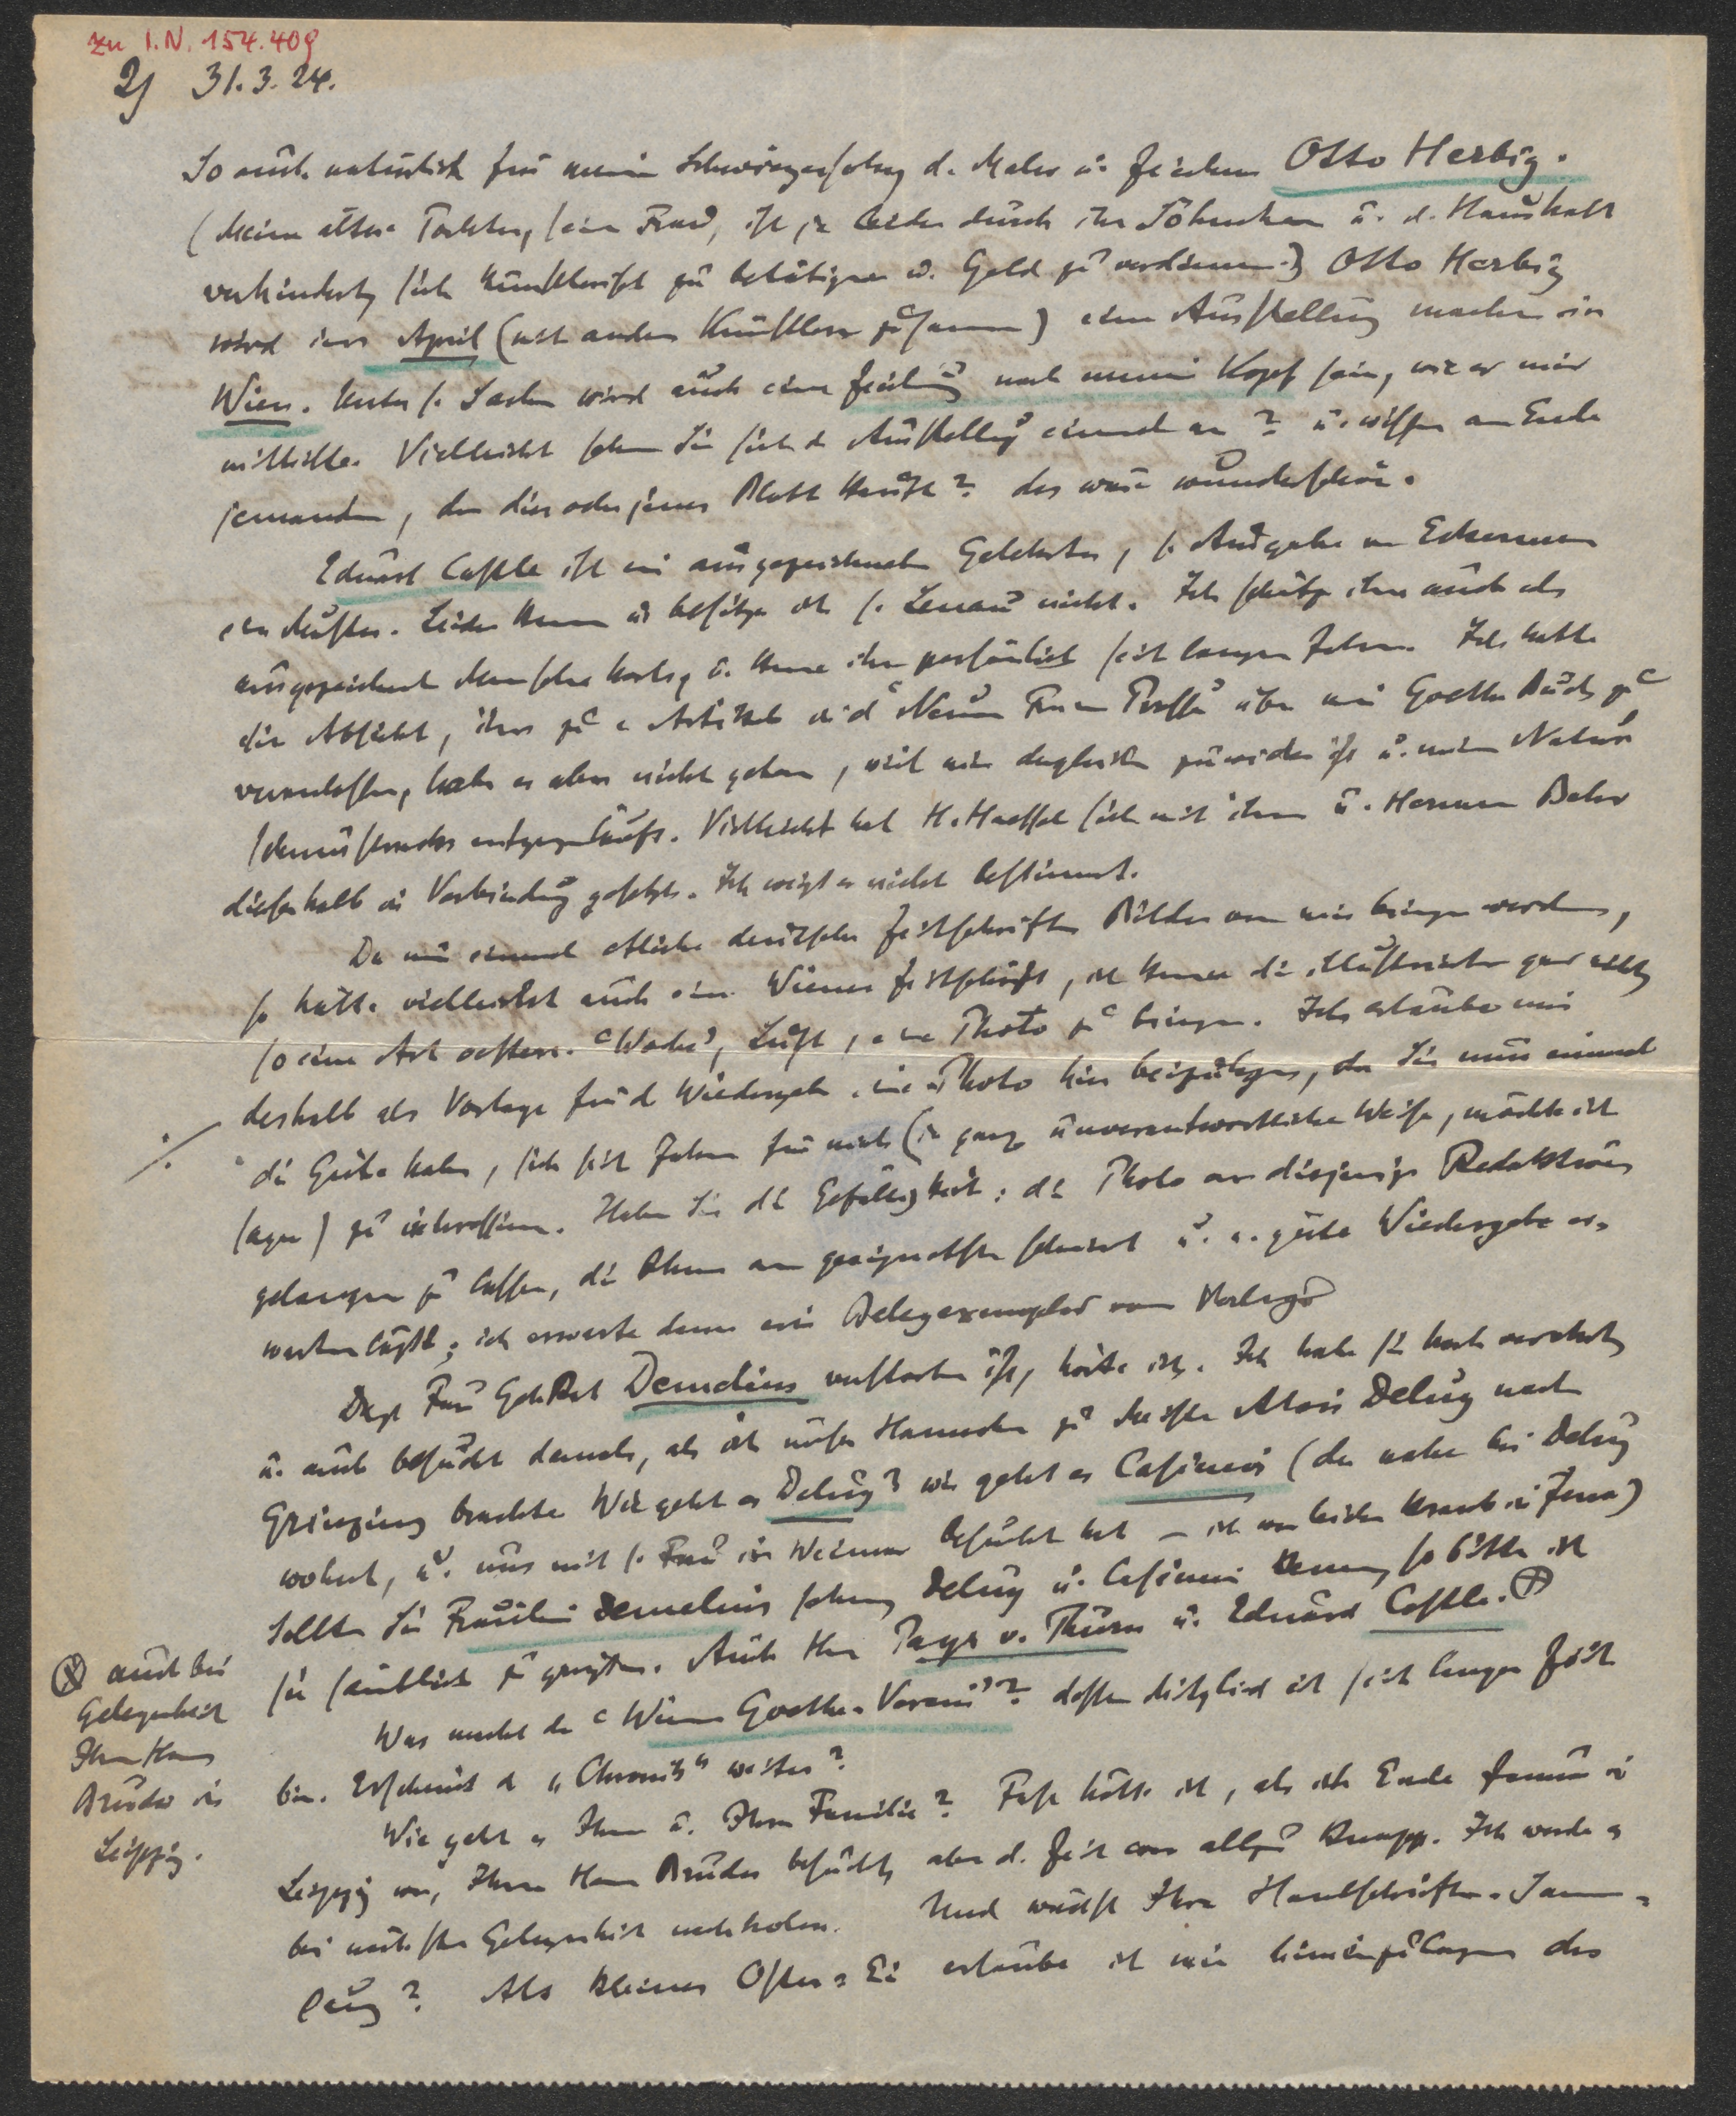 zu I.N. 154.408
2) 31.3.24.
So auch natürlich für meinen Schwiegersohn, d. Maler u. Zeichner Otto Herbig.
(Meine ältere Tochter, seine Frau, ist ja leider durch ihr Söhnchen u. d. Haushalt
verhindert, sich künstlerisch zu betätigen u. Geld zu verdienen.) Otto Herbig
wird im April (mit andern Künstlern zusammen) eine Ausstellung machen in
Wien. Unter s. Sachen wird auch eine Zeichnung nach meinem Kopf sein, wie er mir
mitteilte. Vielleicht sehen Sie sich d. Ausstellung einmal an? u. wissen am Ende
jemanden, der dies oder jenes Blatt kauft? das wäre wunderschön.
Eduard Castle ist ein ausgezeichneter Gelehrter, s. Ausgabe von Eckermann
ein Muster. Leider kenne u. besitze ich s. Lenau nicht. Ich schätze ihn auch als
ausgezeichneten Menschen hoch, u. kenne ihn persönlich seit langen Jahren. Ich hatte
die Absicht, ihn zu e. Artikel in d. Neuen Freien Presse über mein Goethe Buch zu
veranlassen, habe es aber nicht getan, weil mir dergleichen zuwider ist u. meiner Natur
schnurstracks entgegenläuft. Vielleicht hat H. Haessel sich mit ihm u. Hermann Bahr
dieserhalb in Verbindung gesetzt. Ich weiß es nicht bestimmt.
Da nun einmal etliche deutsche Zeitschriften Bilder von mir bringen werden,
so hätte vielleicht auch eine Wiener Zeitschrift, ich kenne die illustrierten gar nicht,
so eine Art oesterr. "Woche", Lust, eine Photo zu bringen. Ich erlaube mir
deshalb als Vorlage für d. Wiedergabe eine Photo hier beizulegen, da Sie nun einmal
die Güte haben, sich seit Jahren für mich (in ganz unverantwortlicher Weise, möchte ich
sagen) zu interessieren. Haben Sie die Gefälligkeit: die Photo an diejenige Redaktion
gelangen zu lassen, die Ihnen am geeignetsten scheint u. e. gute Wiedergabe er-
warten läßt; ich erwarte dann ein Belegexemplar vom Verlage
Daß Frau GehRat Demelius verstorben ist, hörte ich. Ich habe sie hoch verehrt,
u. auch besucht damals, als ich unser Hannchen zu Meister Alois Delug nach
Grinzing brachte. Wie geht es Delug? wie geht es Casimir (der nahe bei Delug
wohnt, u. uns mit s. Frau in Weimar besucht hat – ich war leider krank in Jena)
Sollten Sie Fräulein Demelius sehen, Delug u. Casimir kennen, so bitte ich
sie sämtlich zu grüßen. Auch Herrn Payer v. Thurn u. Eduard Castle. ⊗
⊗ auch bei
Gelegenheit
Ihren Herrn
Bruder in
Leipzig.
Was macht der "Wiener Goethe-Verein"? dessen Mitglied ich seit langer Zeit
bin. Erscheint d. "Chronik" weiter?
Wie geht es Ihnen u. Ihrer Familie? Fast hätte ich, als ich Ende Januar in
Leipzig war, Ihren Herrn Bruder besucht, aber d. Zeit war allzu knapp. Ich werde es
bei nächster Gelegenheit nachholen. Und wächst Ihre Handschriften-Samm-
lung? Als kleines Oster-Ei erlaube ich mir hineinzulegen das